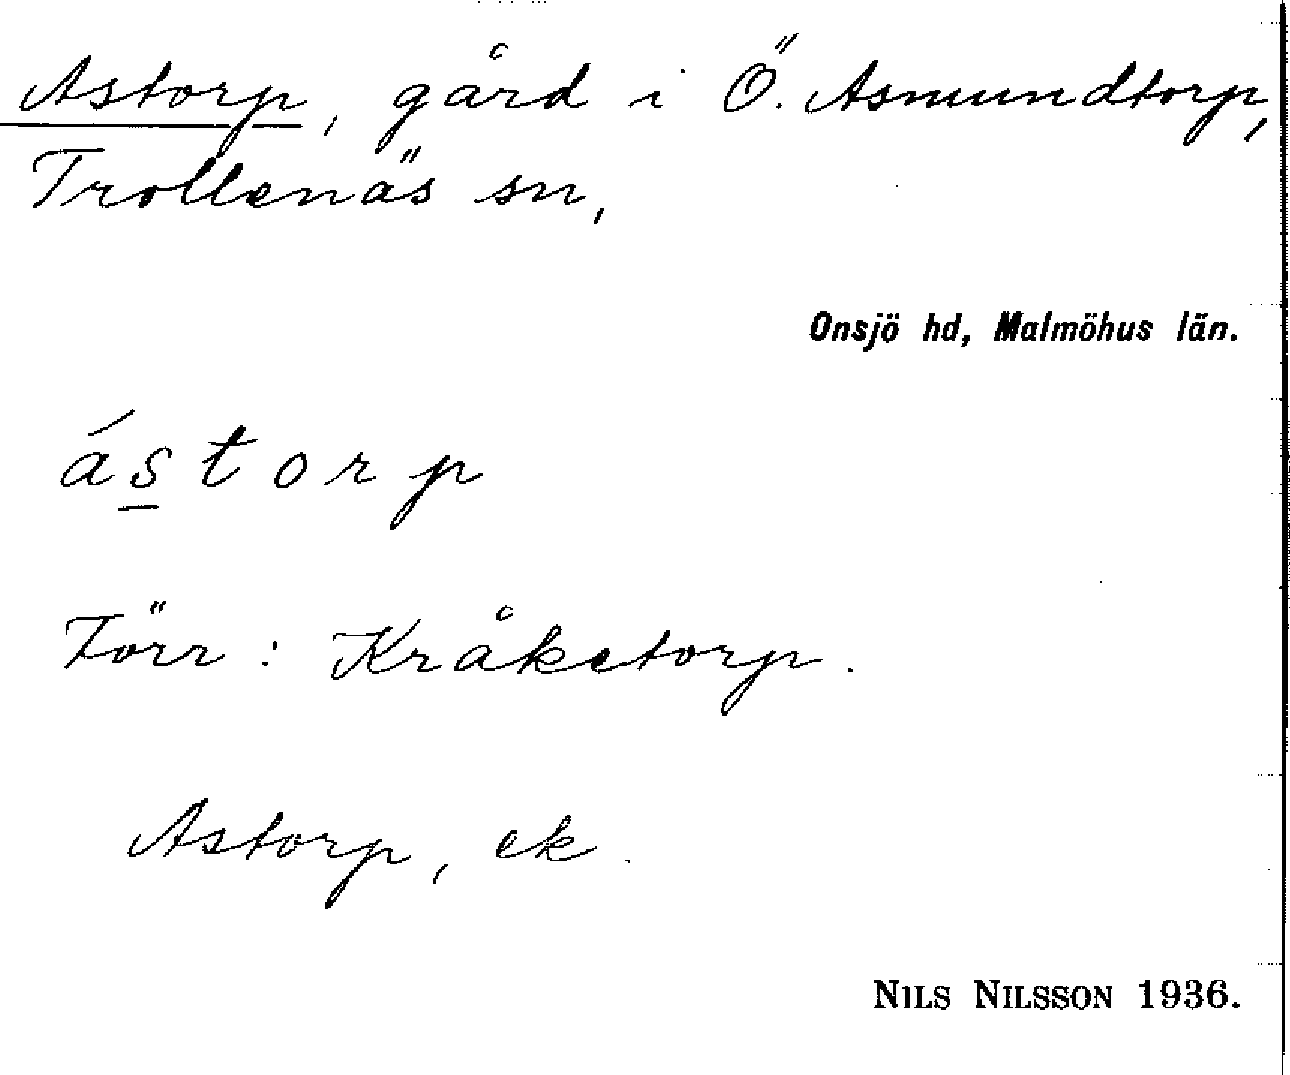 Astorp, gård i Ö. Asmundtorp,
Trollenäs sn,
Onsjö hd, Malmöhus län.
ástorp
Förr: Kråketorp.
Astorp, ek.
NILS NILSSON 1936.